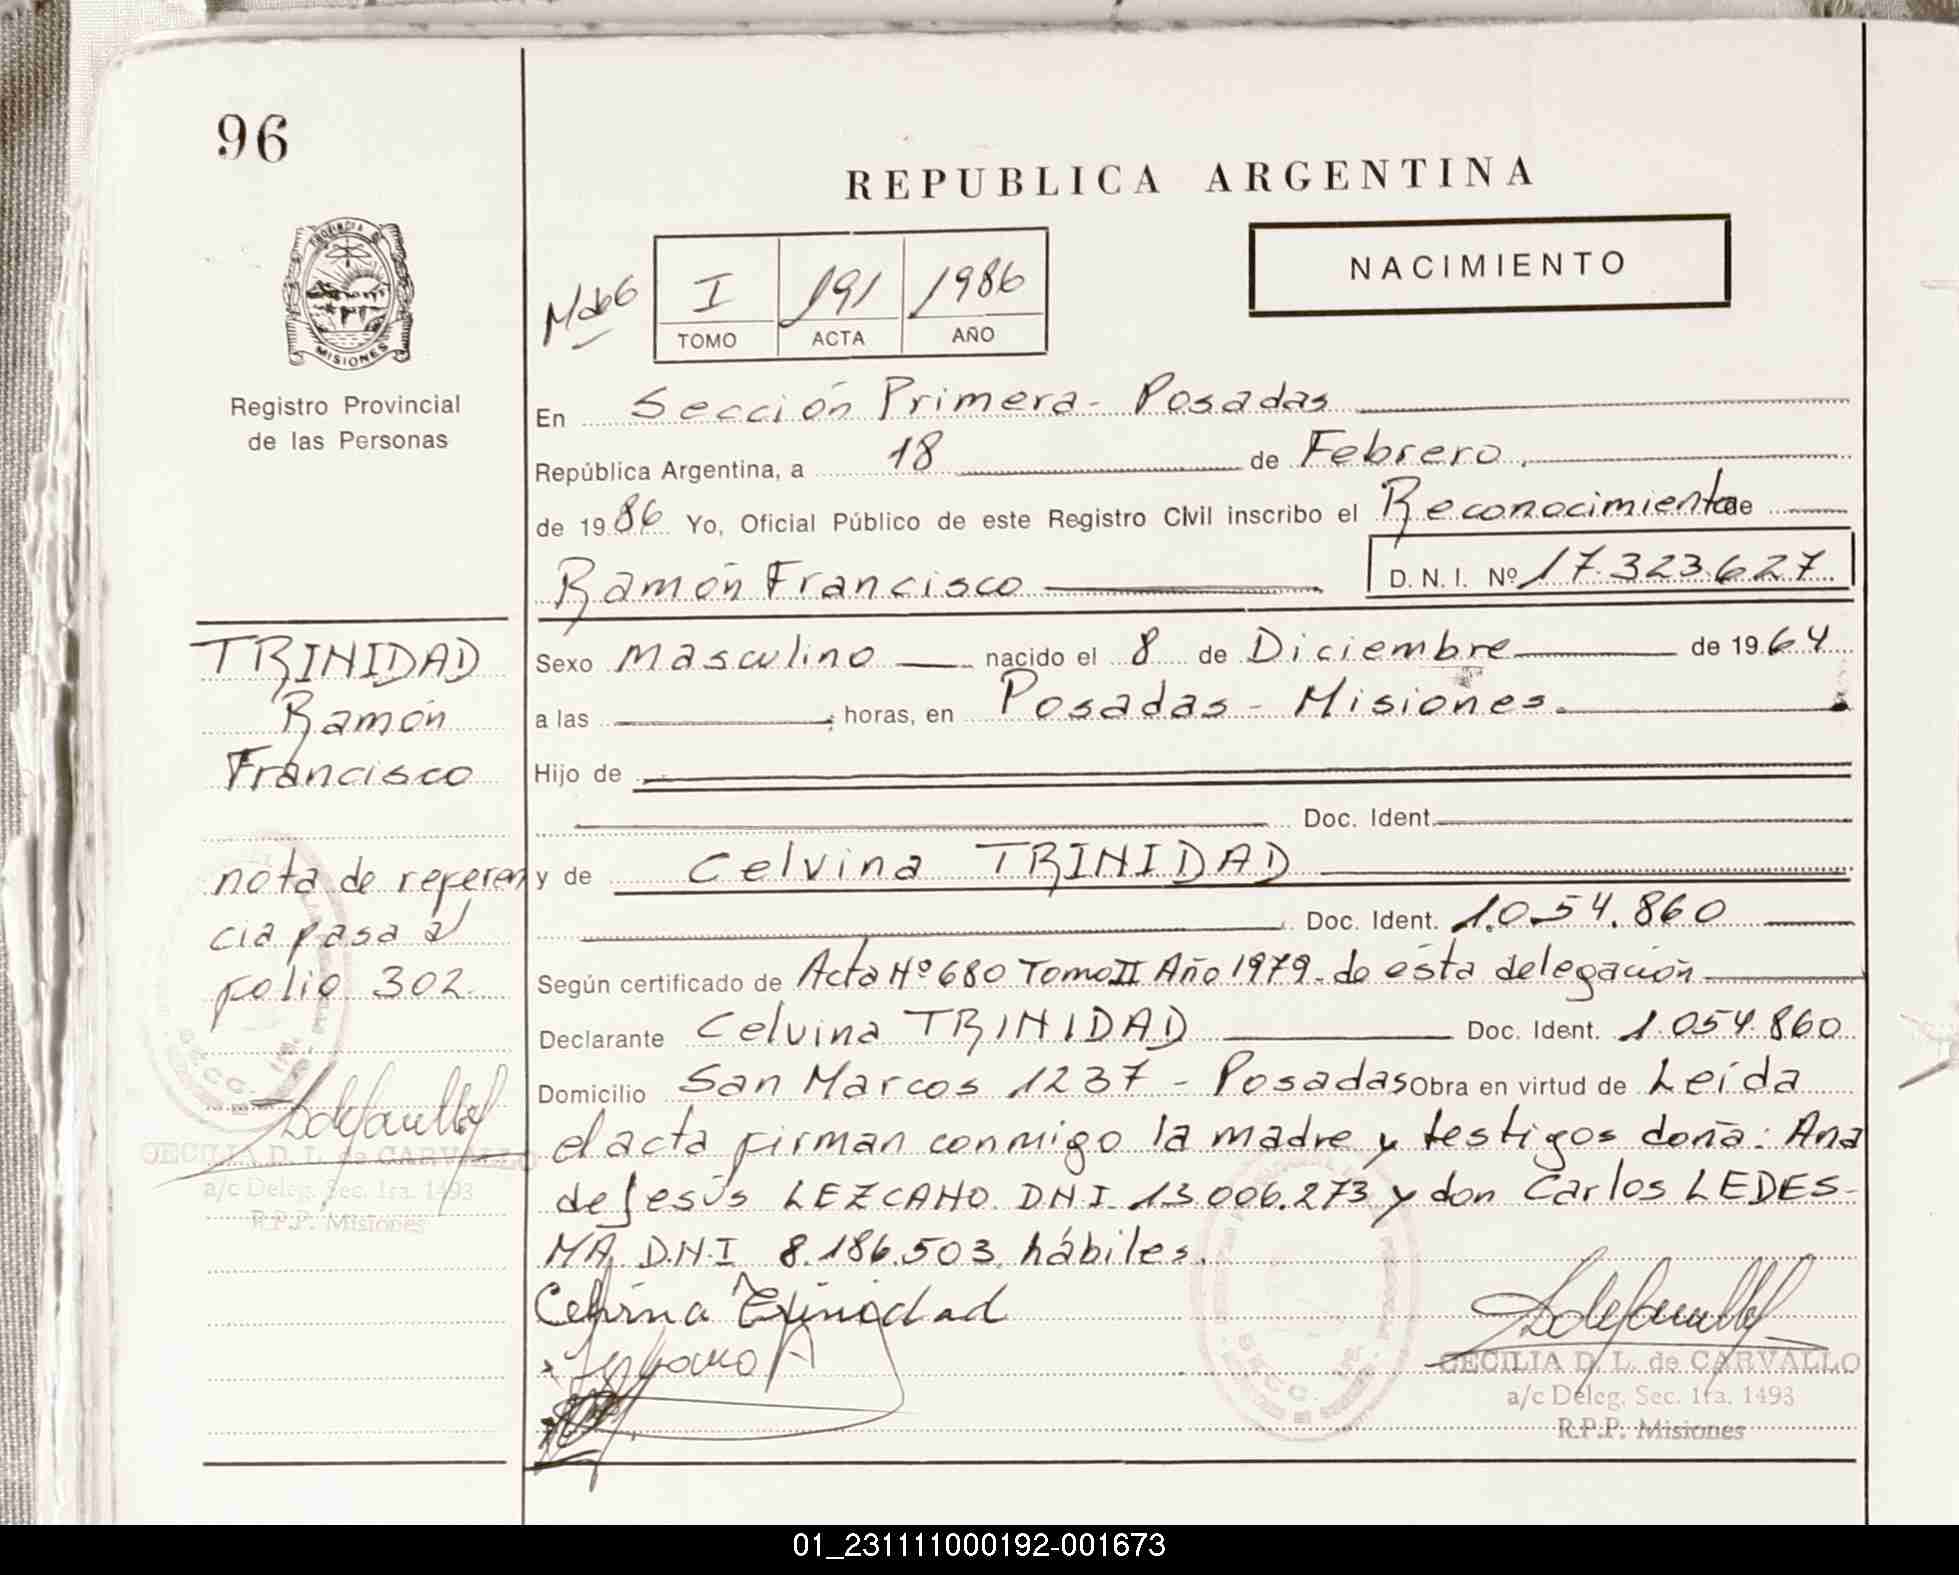 96
REPUBLICA ARGENTINA
NACIMIENTO
I 191 1986
TOMO ACTA AÑO
PROVINCIA DE
MISIONES
Registro Provincial
de las Personas
En Sección Primera - Posadas
República Argentina, a 18 de Febrero
de 1986 Yo, Oficial Público de este Registro Civil inscribo el Reconocimiento de
Ramón Francisco D. N. I. Nº 17.323.627
TRINIDAD
Ramón
Francisco
nota de referen
cia pasa al
folio 302
CECILIA D. L. de CARVALLO
a/c Deleg. Sec. 1ra. 1493
R.P.P. Misiones
Sexo Masculino nacido el 8 de Diciembre de 1964
a las ; horas, en Posadas - Misiones.
Hijo de
Doc. Ident.
y de Celvina TRINIDAD
Doc. Ident. 1.054.860
Según certificado de Acta Nº 680 Tomo II Año 1979 - de ésta delegación
Declarante Celvina TRINIDAD Doc. Ident. 1.054.860
Domicilio San Marcos 1237 - Posadas Obra en virtud de Leída
el acta firman conmigo la madre y testigos doña: Ana
de Jesús LEZCANO D.N.I. 13.006.273 y don Carlos LEDES-
MA, D.N.I 8.186.503, hábiles.
Celvina Trinidad
CECILIA D. L. de CARVALLO
a/c Deleg. Sec. 1ra. 1493
R.P.P. Misiones
01_231111000192-001673